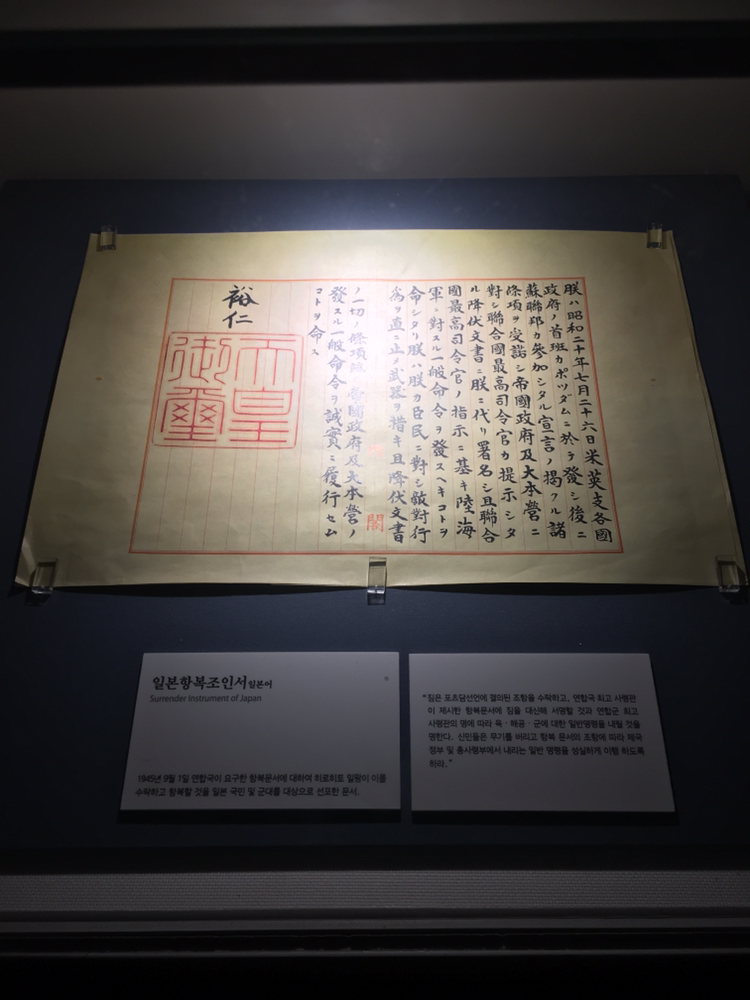 朕ハ昭和二十年七月二十六日米英支各國
政府ノ首班カポツダムニ於テ發シ後ニ
蘇聯邦カ參加シタル宣言ノ掲クル諸
條項ヲ受諾シ帝國政府及大本營ニ
對シ聯合國最高司令官カ提示シタ
ル降伏文書ニ朕ニ代リ署名シ且聯合
國最高司令官ノ指示ニ基キ陸海
軍ニ對スル一般命令ヲ發スヘキコトヲ
命シタリ朕ハ朕カ臣民ニ對シ敵對行
爲ヲ直ニ止メ武器ヲ措キ且降伏文書
閣
ノ一切ノ條項竝ニ帝國政府及大本營ノ
發スル一般命令ヲ誠實ニ履行セム
コトヲ命ス
裕仁
天皇
御璽
일본항복조인서 일본어
Surrender Instrument of Japan
1945년 9월 1일 연합국이 요구한 항복문서에 대하여 히로히토 일왕이 이를
수락하고 항복할 것을 일본 국민 및 군대를 대상으로 선포한 문서.
"짐은 포츠담선언에 결의된 조항을 수락하고, 연합국 최고 사령관
이 제시한 항복문서에 짐을 대신해 서명할 것과 연합군 최고
사령관의 명에 따라 육·해공·군에 대한 일반명령을 내릴 것을
명한다. 신민들은 무기를 버리고 항복 문서의 조항에 따라 제국
정부 및 총사령부에서 내리는 일반 명령을 성실하게 이행 하도록
하라."